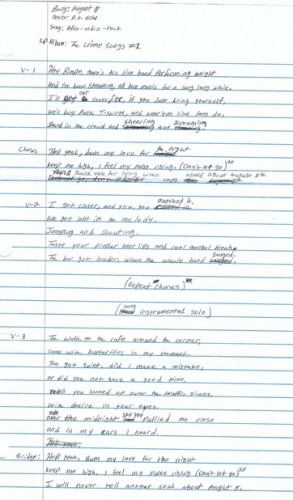 Song: August 8
Writer: P.K.
Song: Afro-indie-rock
LP Album: The Crime Songs #1
V-1
Hey Bimpe, there's this live band performing tonight
And I've been streaming all her music for a long long while.
I'll get out if you love being yourself,
We'll buy Rock T-shirts, and wear'em like fans do.
Stand in the crowd and cheering and screaming
Chorus
Hell yeah, burn my love for the night
keep me high, I feel my pulse rising (Don't let go)2x
Thank you for lying when asked about August 8th
V-2
I got closer, and you, you matched it,
We got lost in the melody.
Jumping and shouting.
Taste your beer lips and cool menthol breath
The bar got louder when the whole band surged.
(Repeat chorus)
(long instrumental solo)
V-3
The walk to the cafe around the corner,
some wild butterflies in my stomach.
You got quiet, did I make a mistake,
or did you not have a good time,
until you looked up over the traffic sirens
with desire in your eyes.
the midnight you pulled me close
and in my ears I heard.
Hell yeah.
Bridge:
Hell yeah, Burn my love for the night
keep me high, I feel my pulse rising (Don't let go)2x
I will never tell another soul about August 8.